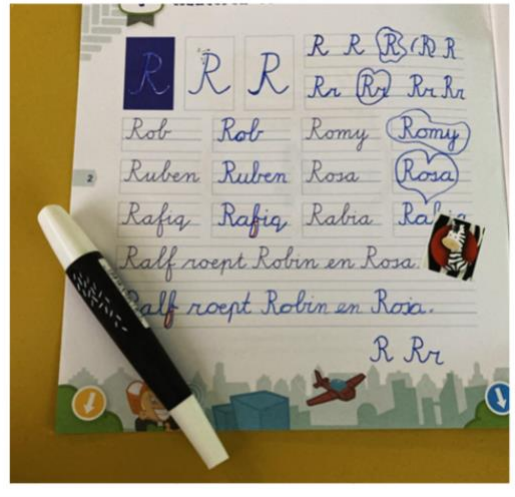 R R R R R R R R
Rr Rr Rr Rr
Rob Rob Romy Romy
2
Ruben Ruben Rosa Rosa
Rafiq Rafiq Rabia Rabia
Ralf roept Robin en Rosa.
Ralf roept Robin en Rosa.
R Rr